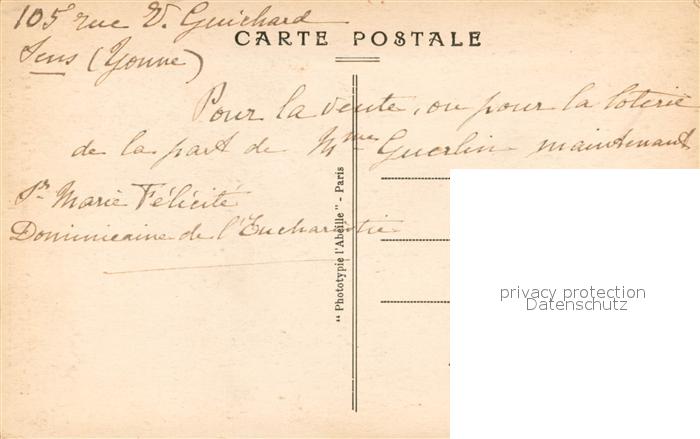 105 rue V. Guichard
CARTE POSTALE
Sens (Yonne)
Pour la vente, ou pour la loterie
de la part de Mme Guerlin maintenant
Sr Marie Félicité
Dominicaine de l'Eucharistie
"Phototypie l'Abeille" - Paris
privacy protection
Datenschutz